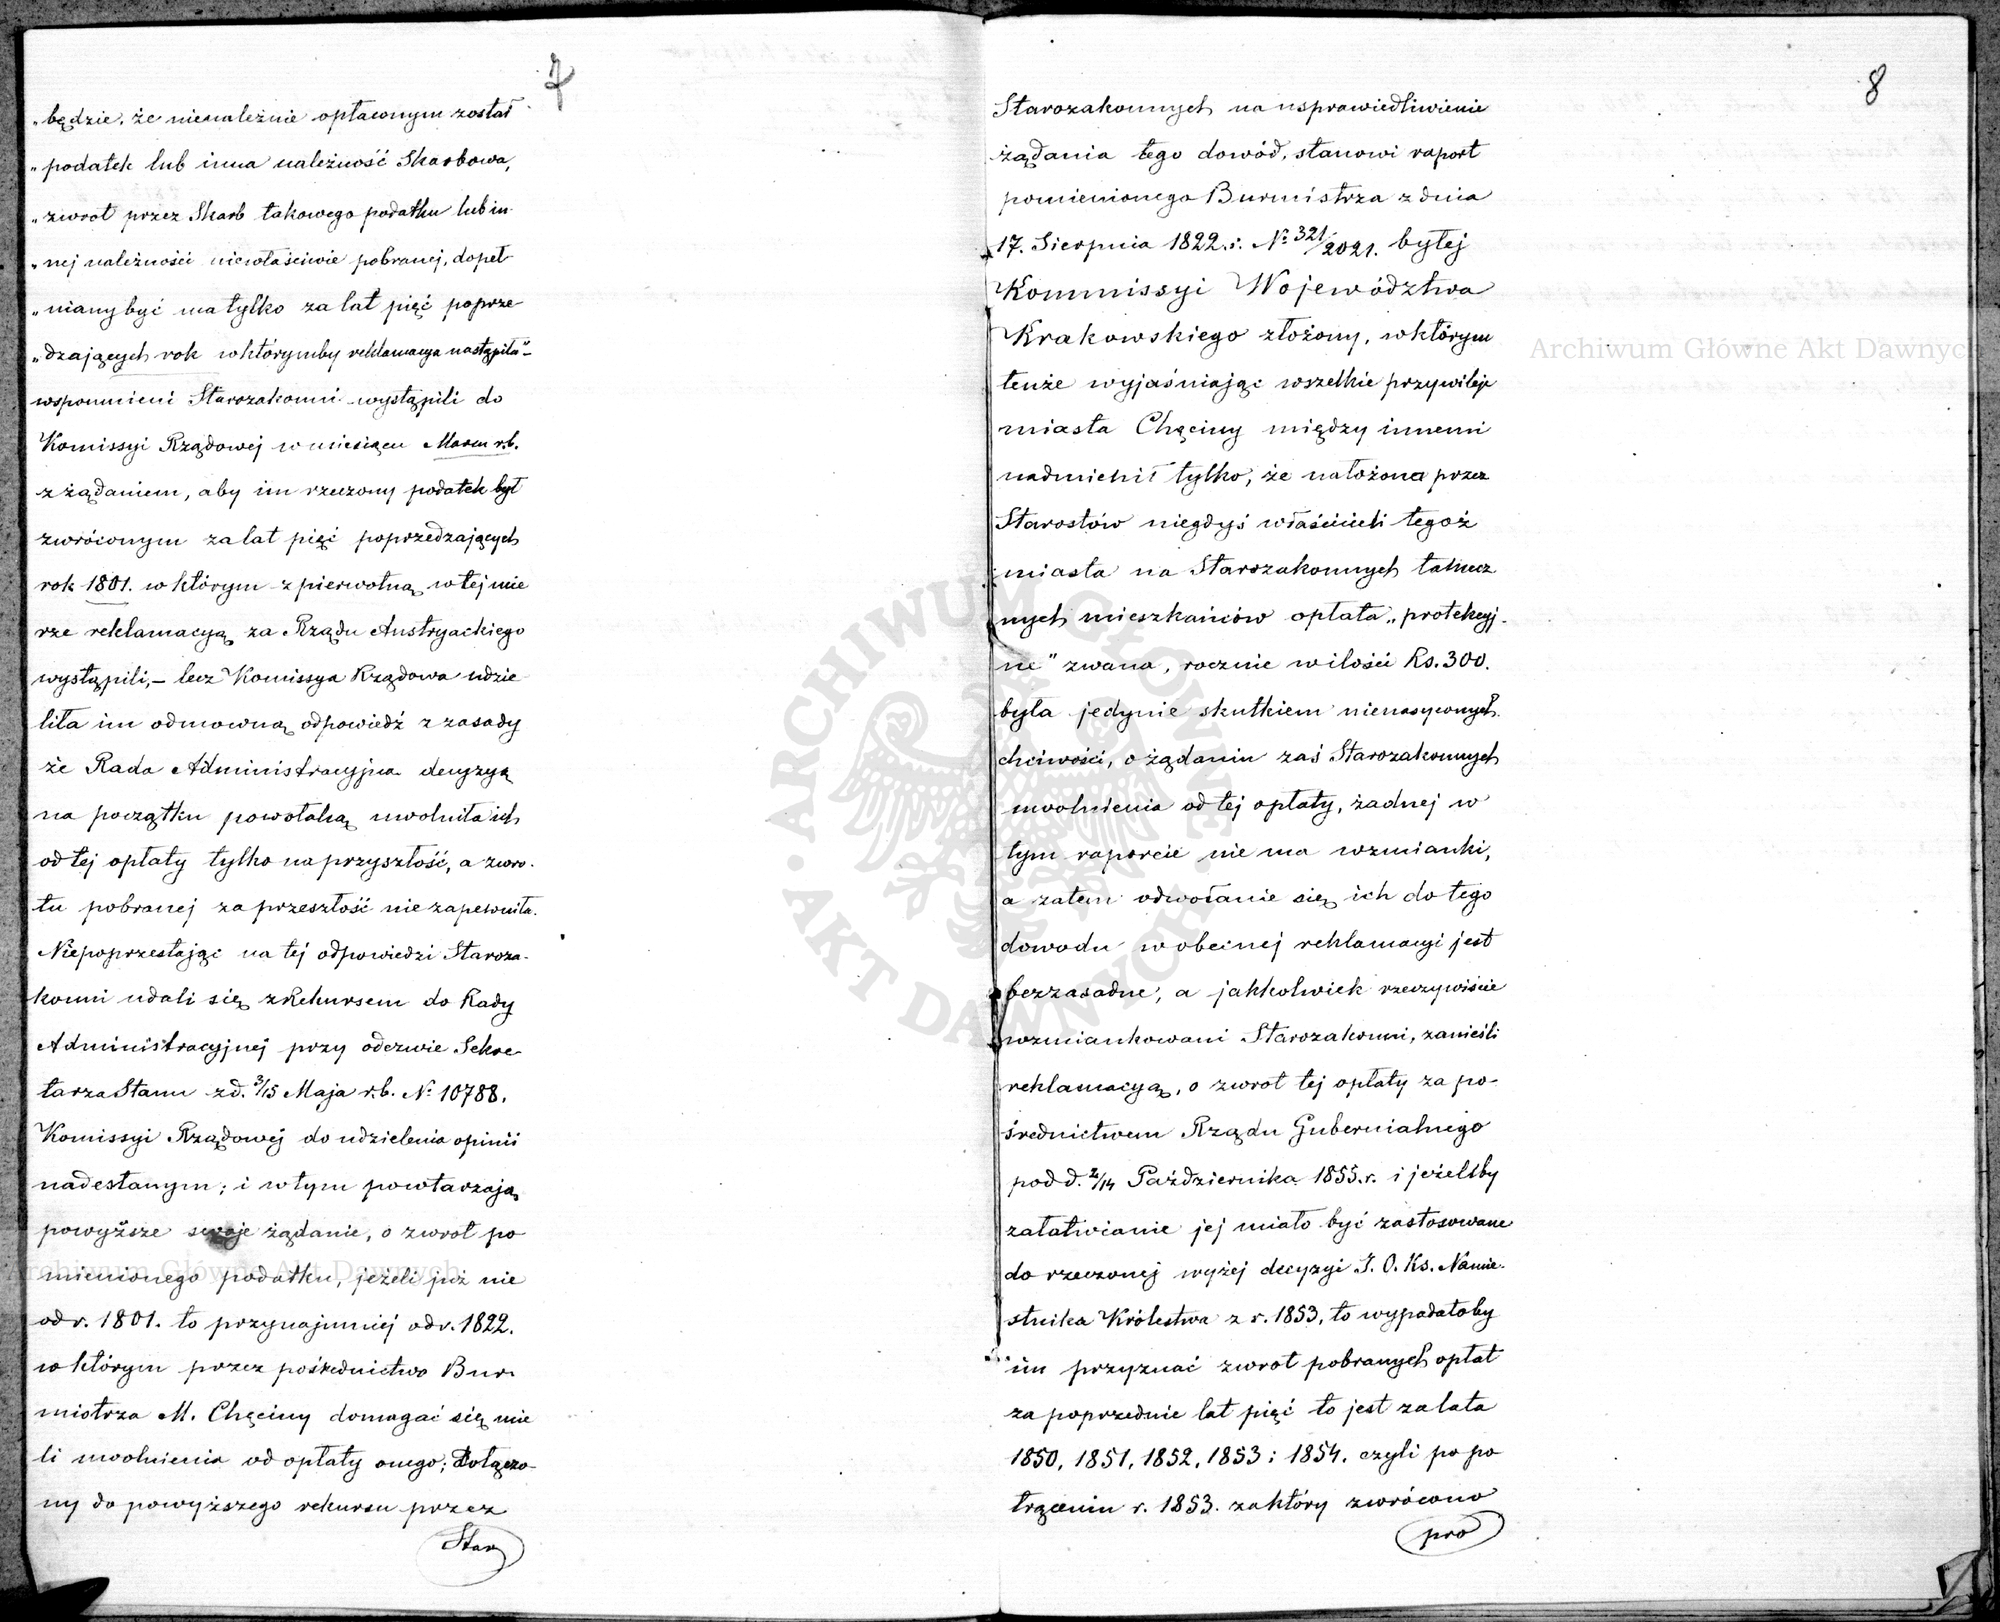 7
„będzie, że nienależnie opłaconym został
„podatek lub inna należność Skarbowa,
„zwrot przez Skarb takowego podatku lub in
„nej należności niewłaściwie pobranej, dopeł
„niany być ma tylko za lat pięć poprze
„dzających rok w którymby reklamacya nastąpiła"–
wspomnieni Starozakonni wystąpili do
Komissyi Rządowej w miesiącu Marcu r.b.
z żądaniem, aby im rzeczony podatek był
zwróconym za lat pięć poprzedzających
rok 1801. w którym z pierwotną w tej mie
rze reklamacyą za Rządu Austryackiego
wystąpili,– lecz Komissya Rządowa udzie
liła im odmowną odpowiedź z zasady
że Rada Administracyjna decyzyą
na początku powołaną uwolniła ich
od tej opłaty tylko na przyszłość, a zwro-
tu pobranej za przeszłość nie zapewniła.
Niepoprzestając na tej odpowiedzi Staroza-
konni udali się z Rekursem do Rady
Administracyjnej przy odezwie Sekre-
tarza Stanu z d. 3/15 Maja r.b. № 10788.
Komissyi Rządowéj do udzielenia opinii
nadesłanym; i w tym powtarzają
powyższe swoje żądanie, o zwrot po
mienionego podatku, jeżeli już nie
od r. 1801. to przynajmniej od r. 1822.
w którym przez pośrednictwo Bur
mistrza M. Chęciny domagać się mie
li uwolnienia od opłaty onego; Dołączo
ny do powyższego rekursu przez
Star
8
Starozakonnych na usprawiedliwienie
żądania tego dowód, stanowi raport
pomienionego Burmistrza z dnia
17. Sierpnia 1822.r. № 321/2021. byłej
Kommissyi Województwa
Krakowskiego złożony, w którym
tenże wyjaśniając wszelkie przywileje
miasta Chęciny między innemi
nadmienił tylko, że nałożona przez
Starostów niegdyś właścicieli tegoż
miasta na Starozakonnych tamecz
nych mieszkańców opłata „protekcyj-
ne" zwana, rocznie w ilości Rs. 300.
była jedynie skutkiem nienasyconych
chciwości, o żądaniu zaś Starozakonnych
uwolnienia od tej opłaty, żadnej w
tym raporcie nie ma wzmianki,
a zatem odwołanie się ich do tego
dowodu w obecnej reklamacyi jest
bezzasadne; a jakkolwiek rzeczywiście
wzmiankowani Starozakonni, zanieśli
reklamacyą, o zwrot tej opłaty za po-
średnictwem Rządu Gubernialnego
pod d. 2/14 Października 1855.r. i jeżeliby
załatwianie jej miało być zastosowane
do rzeczonej wyżej decyzyi J. O. Ks. Namie-
stnika Królestwa z r. 1853, to wypadałoby
im przyznać zwrot pobranych opłat
za poprzednie lat pięć to jest za lata
1850, 1851, 1852, 1853 i 1854. czyli po po
trąceniu r. 1853. za który zwrócono
pro
Archiwum Główne Akt Dawnych
Archiwum Główne Akt Dawnych
ARCHIWUM GŁÓWNE • AKT DAWNYCH •